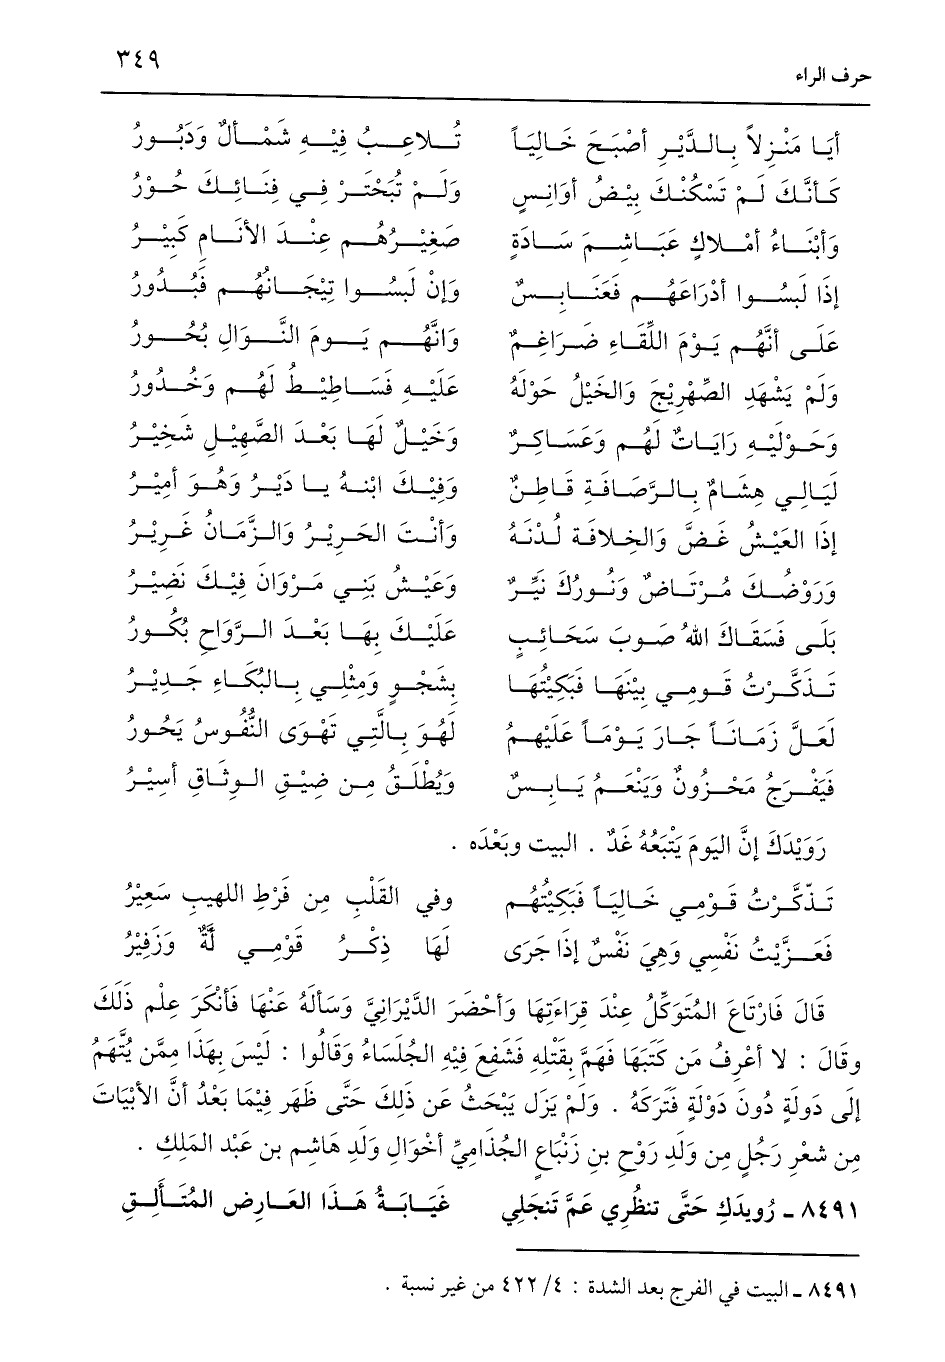 ٣٤٩
حرف الراء
أَيَا مَنْزِلاً بِالدَّيْرِ أَصْبَحَ خَالِيَاً تُلاعِبُ فِيْهِ شَمْأَلٌ وَدَبُورُ
كَأَنَّكَ لَمْ تَسْكُنْكَ بِيْضٌ أَوَانِسٍ وَلَمْ تَبَخْتَرْ فِي فَنَائِكَ حُوْرُ
وَأَبْنَاءُ أَمْلاكٍ عَبَاشِمَ سَادَةٍ صَغِيْرُهُمِ عِنْدَ الأَنَامِ كَبِيْرُ
إِذَا لَبِسُوا أَدْرَاعَهُمِ فَعَنَابِسٌ وَإِنْ لَبِسُوا تِيْجَانَهُمِ فَبُدُورُ
عَلَى أَنَّهُم يَوْمَ اللِّقَاءِ ضَرَاغِمٌ وَإِنَّهُمِ يَومَ النَّوَالِ بُحُورُ
وَلَمْ يَشْهَدِ الصِّهْرِيْجَ وَالخَيْلُ حَوْلَهُ عَلَيْهِ فَسَاطِيْطٌ لَهُمِ وَخُدُورُ
وَحَوْلَيْهِ رَايَاتٌ لَهُمِ وَعَسَاكِرٌ وَخَيْلٌ لَهَا بَعْدَ الصَّهِيْلِ شَخِيْرُ
لَيَالِي هِشَامٌ بِالرَّصَافَةِ قَاطِنٌ وَفِيْكَ ابْنُهُ يا دَيْرُ وَهُوَ أَمِيْرُ
إِذَا العَيْشُ غَضٌّ وَالخِلافَةُ لُدْنَهُ وَأَنْتَ الحَرِيْرُ وَالزَّمَانُ غَرِيْرُ
وَرَوْضُكَ مُرْتَاضٌ وَنُورُكَ نَيِّرٌ وَعَيْشُ بَنِي مَرْوَانَ فِيْكَ نَضِيْرُ
بَلَى فَسَقَاكَ اللهُ صَوبَ سَحَائِبٍ عَلَيْكَ بِهَا بَعْدَ الرَّوَاحِ بُكُورُ
تَذَكَّرْتُ قَومِي بِيْنَهَا فَبَكَيْتُهَا بِشَجْوٍ وَمِثْلِي بِالبُكَاءِ جَدِيْرُ
لَعَلَّ زَمَانَاً جَارَ يَوْمَاً عَلَيْهِمُ لَهُوَ بِالَّتِي تَهْوَى النُّفُوسُ يَحُورُ
فَيَفْرَحُ مَحْزُونٌ وَيَنْعَمُ يَابِسٌ وَيُطْلَقُ مِن ضِيْقِ الوِثَاقِ أَسِيْرُ
رَوَيْدَكَ إِنَّ اليَومَ يَتْبَعُهُ غَدٌ . البيت وبَعْدَه .
تَذَكَّرْتُ قَوْمِي خَالِيَاً فَبَكَيْتُهُمِ وفي القَلْبِ مِن فَرْطِ اللهيبِ سَعِيْرُ
فَعَزَّيْتُ نَفْسِي وَهِيَ نَفْسٌ إِذَا جَرَى لَهَا ذِكْرُ قَوْمِي أَنَّةٌ وَزَفِيْرُ
قَالَ فَارْتَاعَ المُتَوَكِّلُ عِنْدَ قِرَاءَتِهَا وَأَحْضَرَ الدَّيْرَانِيَّ وَسَأَلَهُ عَنْهَا فَأَنْكَرَ عِلْمِ ذَلِكَ
وقَالَ : لا أَعْرِفُ مَن كَتَبَهَا فَهَمَّ بِقَتْلِهِ فَشَفِعَ فِيْهِ الجُلَسَاءُ وَقَالُوا : لَيْسَ بِهَذَا مِمَّن يُتَّهَمُ
إِلَى دَولَةٍ دُونَ دَوْلَةٍ فَتَرَكَهُ . وَلَمْ يَزَل يَبْحَثُ عَن ذَلِكَ حَتَّى ظَهَرَ فِيْمَا بَعْدُ أَنَّ الأَبْيَاتَ
مِن شعْرِ رَجُلٍ مِن وَلَدِ رَوْحِ بنِ زِنْبَاعِ الجُذَامِيِّ أَخْوَالِ وَلَدِ هَاشِمِ بن عَبْد المَلِكِ .
٨٤٩١ ـ رُوِيدَكِ حَتَّى تنظُرِي عَمَّ تَنجَلِي غَيَابَةُ هَذَا العَارِضِ المُتَأَلِّقِ
٨٤٩١ ـ البيت في الفرج بعد الشدة : ٤/ ٤٢٢ من غير نسبة .